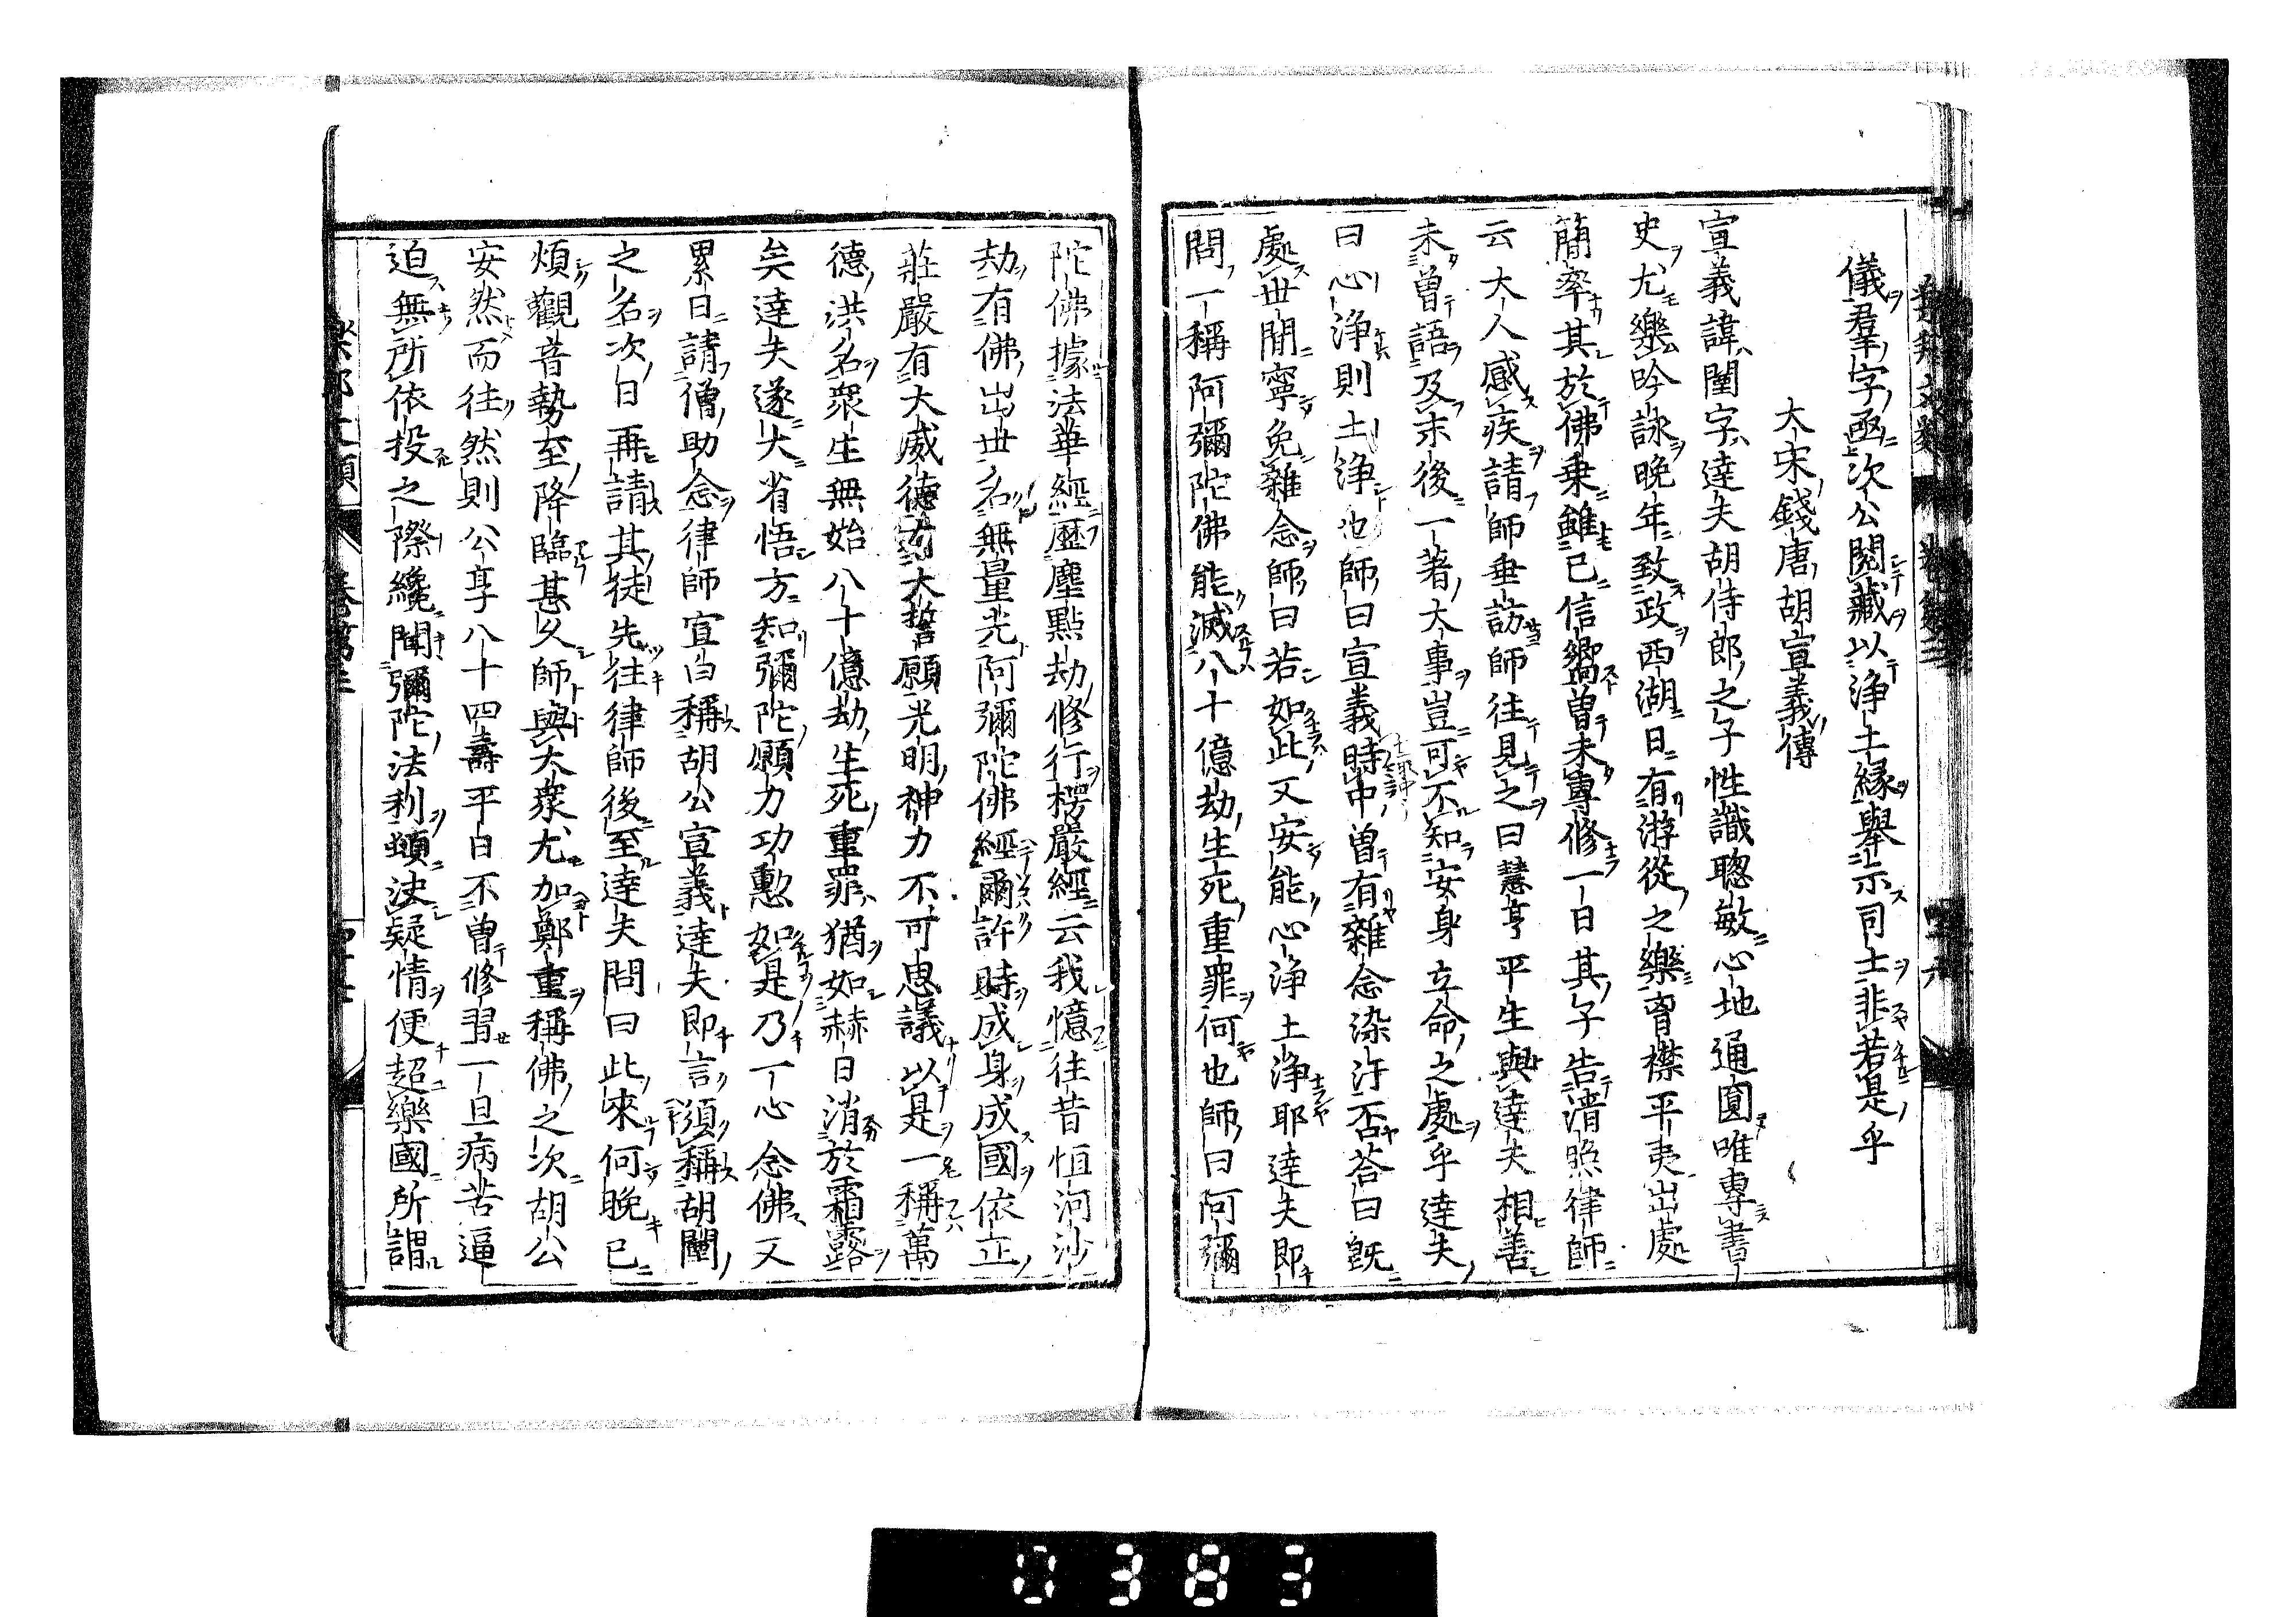 儀羣字亟次公閱藏以淨土緣舉示同士非若是乎
大宋錢唐胡宣義傳
宣義諱闉字達夫胡侍郎之子性識聰敏心地通圓唯專書
史尤樂吟詠晚年致政西湖日有游從之樂育襟平夷出處
簡率其於佛乗雖已信嚮曽未專修一日其子告清照律師
云大人感疾請師垂訪師往見之曰慧亨平生與達夫相善
未曽語及末後一著大事豈可不知安身立命之處乎達夫
曰心淨則土淨也師曰宣義時中曽有雜念染汙否荅曰旣
處世間寧免雜念師曰若如此又安能心淨土淨耶達夫即
問一稱阿彌陀佛能滅八十億劫生死重罪何也師曰阿彌
陀佛據法華經歷塵點劫修行楞嚴經云我憶往昔恒河沙
劫有佛出世名無量光阿彌陀佛經爾許時成身成國依正
莊嚴有大威德發大誓願光明神力不可思議以是一稱萬
德洪名衆生無始八十億劫生死重罪猶如赫日消於霜露
矣達夫遂大省悟方知彌陀願力功勲如是乃一心念佛又
累日請僧助念律師宣白稱胡公宣義達夫即言須稱胡闉
之名次日再請其徒先往律師後至達夫問曰此來何晩已
煩觀音勢至降臨甚久師與大衆尤加鄭重稱佛之次胡公
安然而往然則公享八十四壽平日不曽修習一旦病苦逼
迫無所依投之際纔聞彌陀法利頓決疑情便超樂國所謂
樂邦文類 卷第三
0383